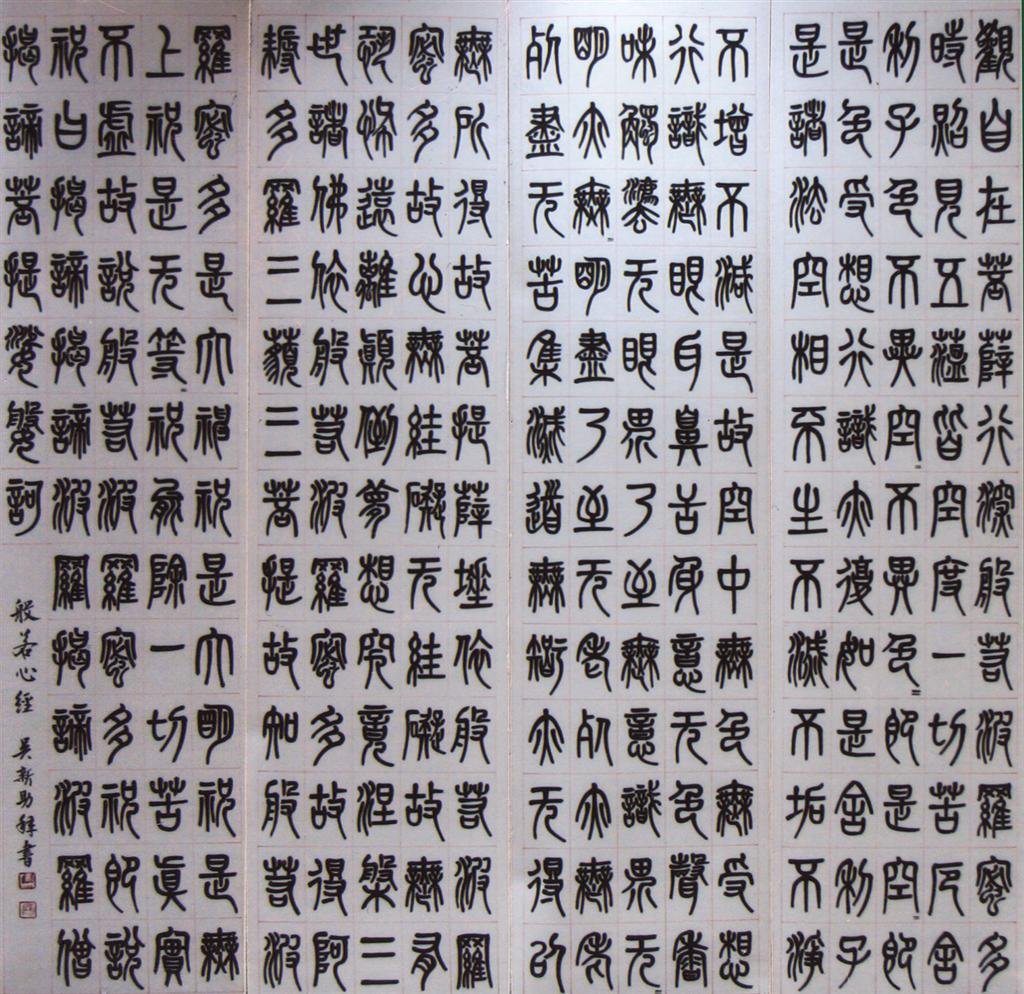 觀自在菩薩行深般若波羅蜜多
時照見五蘊皆空度一切苦厄舍
利子色不異空〻不異色〻即是空〻即
是色受想行識亦復如是舍利子
是諸法空相不生不滅不垢不淨
不增不減是故空中無色無受想
行識無眼耳鼻舌身意无色聲香
味觸法无眼界乃至無意識界无〻
明亦無〻明盡乃至无老死亦無老
死盡无苦集滅道無智亦无得以
無所得故菩提薩埵依般若波羅
蜜多故心無罣礙无罣礙故無有
恐怖遠離顛倒夢想究竟涅槃三
世諸佛依般若波羅蜜多故得阿
耨多羅三藐三菩提故知般若波
羅蜜多是大神祝是大明祝是無
上祝是无等〻祝能除一切苦真實
不虛故說般若波羅蜜多祝即說
祝曰揭諦揭諦波羅揭諦波羅僧
揭諦菩提娑婆訶
般若心經 吳新助書